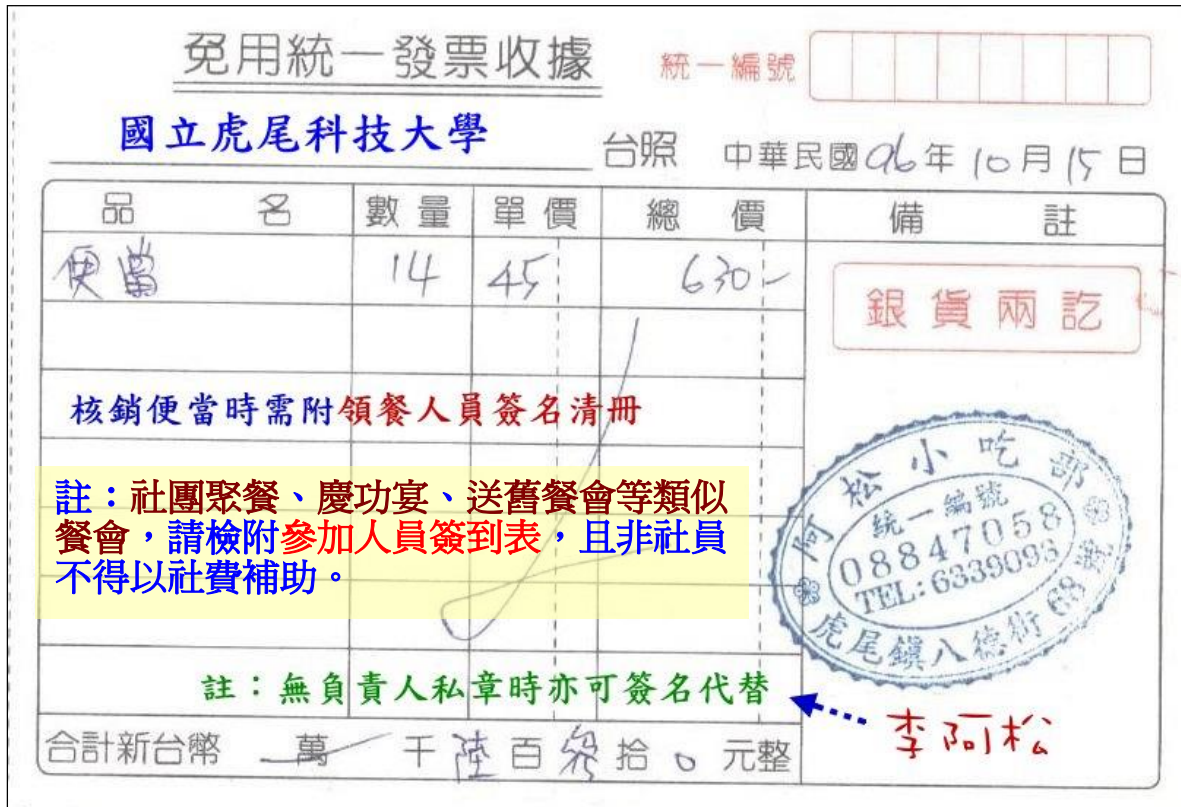 免用統一發票收據 統一編號
國立虎尾科技大學 台照 中華民國96年10月15日
品名 數量 單價 總價 備註
便當 14 45 630-
銀貨兩訖
核銷便當時需附領餐人員簽名清冊
註：社團聚餐、慶功宴、送舊餐會等類似
餐會，請檢附參加人員簽到表，且非社員
不得以社費補助。
阿松小吃部
統一編號
08847058
TEL:6339093
虎尾鎮八德街68號
註：無負責人私章時亦可簽名代替
李阿松
合計新台幣 萬 千陸百參拾0元整